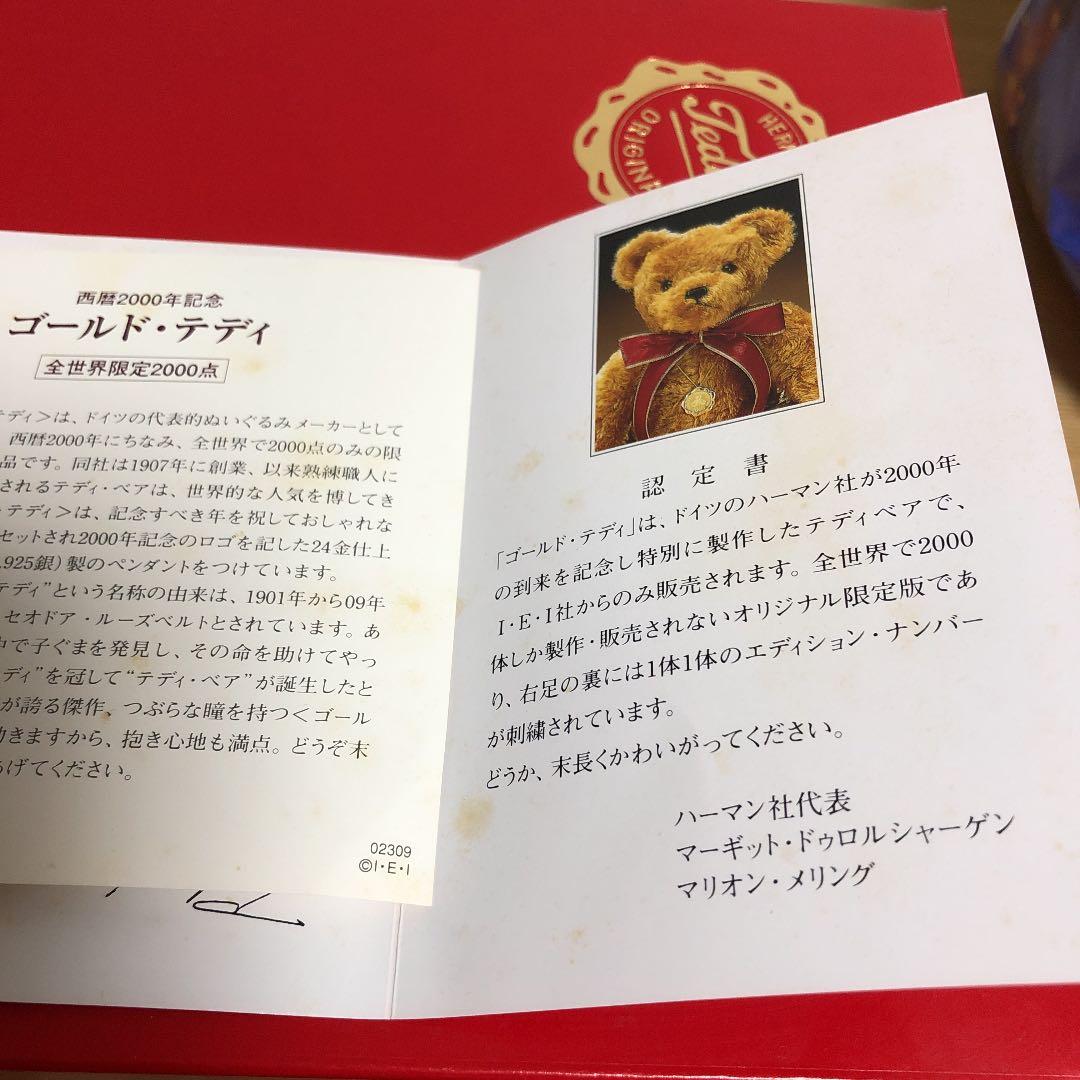 HER
Ted
ORIGIN
西暦2000年記念
ゴールド・テディ
全世界限定2000点
ディ＞は、ドイツの代表的ぬいぐるみメーカーとして
西暦2000年にちなみ、全世界で2000点のみの限
品です。同社は1907年に創業、以来熟練職人に
されるテディ・ベアは、世界的な人気を博してき
テディ＞は、記念すべき年を祝しておしゃれな
セットされ2000年記念のロゴを記した24金仕上
.925銀）製のペンダントをつけています。
テディ”という名称の由来は、1901年から09年
セオドア・ルーズベルトとされています。あ
中で子ぐまを発見し、その命を助けてやっ
ディ”を冠して“テディ・ベア”が誕生したと
が誇る傑作、つぶらな瞳を持つ＜ゴール
動きますから、抱き心地も満点。どうぞ末
あげてください。
02309
©I・E・I
認定書
「ゴールド・テディ」は、ドイツのハーマン社が2000年
の到来を記念し特別に製作したテディベアで、
I・E・I社からのみ販売されます。全世界で2000
体しか製作・販売されないオリジナル限定版であ
り、右足の裏には1体1体のエディション・ナンバー
が刺繍されています。
どうか、末長くかわいがってください。
ハーマン社代表
マーギット・ドゥロルシャーゲン
マリオン・メリング